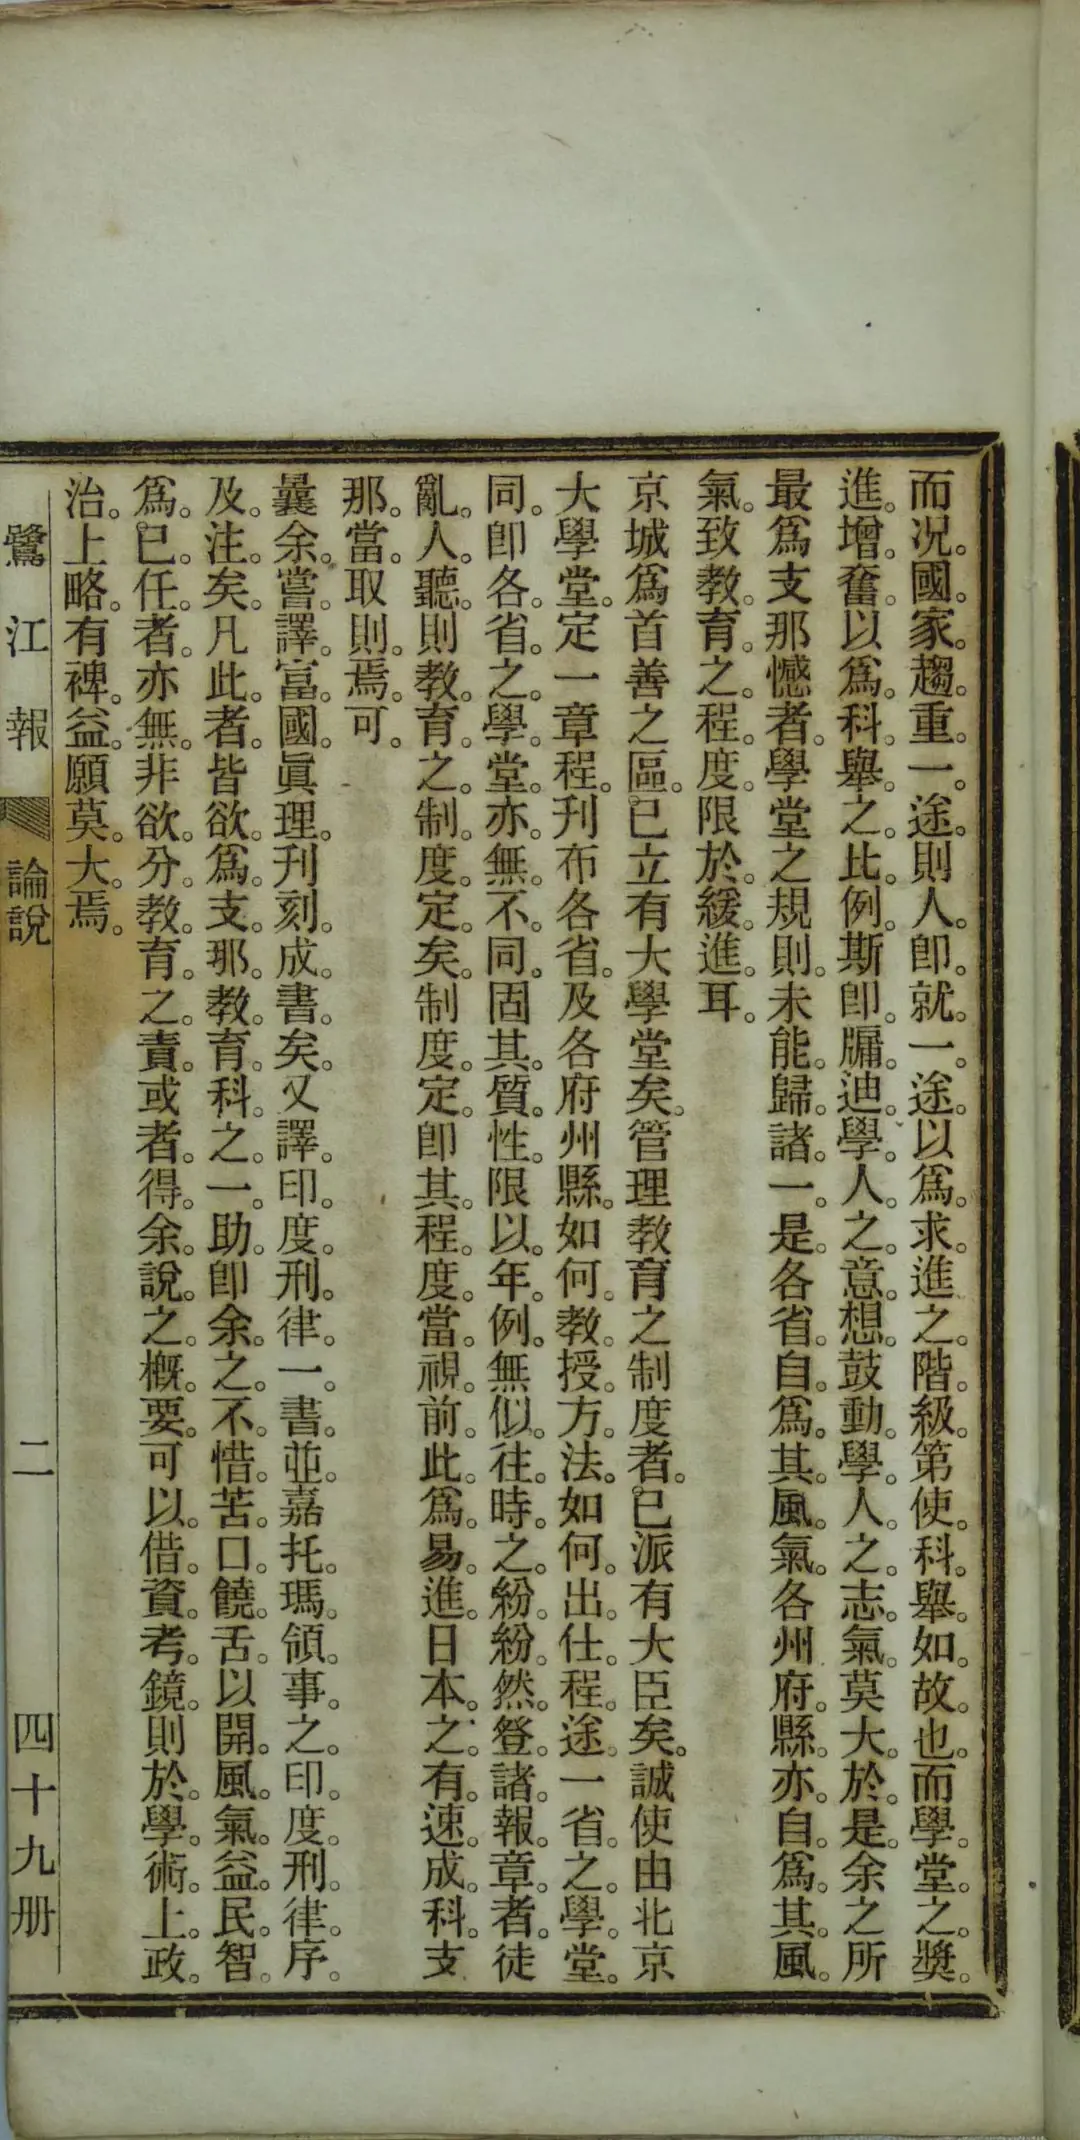 而况國家趨重一途則人卽就一途以爲求進之階級第使科舉如故也而學堂之奬
進增奮以爲科舉之比例斯卽牖迪學人之意想鼓動學人之志氣莫大於是余之所
最爲支那憾者學堂之規則未能歸諸一是各省自爲其風氣各州府縣亦自爲其風
氣致教育之程度限於緩進耳
京城爲首善之區已立有大學堂矣管理教育之制度者已派有大臣矣誠使由北京
大學堂定一章程刊布各省及各府州縣如何教授方法如何出仕程途一省之學堂
同卽各省之學堂亦無不同固其質性限以年例無似往時之紛紛然登諸報章者徒
亂人聽則教育之制度定矣制度定卽其程度當視前此爲易進日本之有速成科支
那當取則焉可
曩余嘗譯富國眞理刊刻成書矣又譯印度刑律一書並嘉托瑪領事之印度刑律序
及注矣凡此者皆欲爲支那教育科之一助卽余之不惜苦口饒舌以開風氣益民智
爲已任者亦無非欲分教育之責或者得余說之概要可以借資考鏡則於學術上政
治上略有裨益願莫大焉
鷺江報 論說 二 四十九册